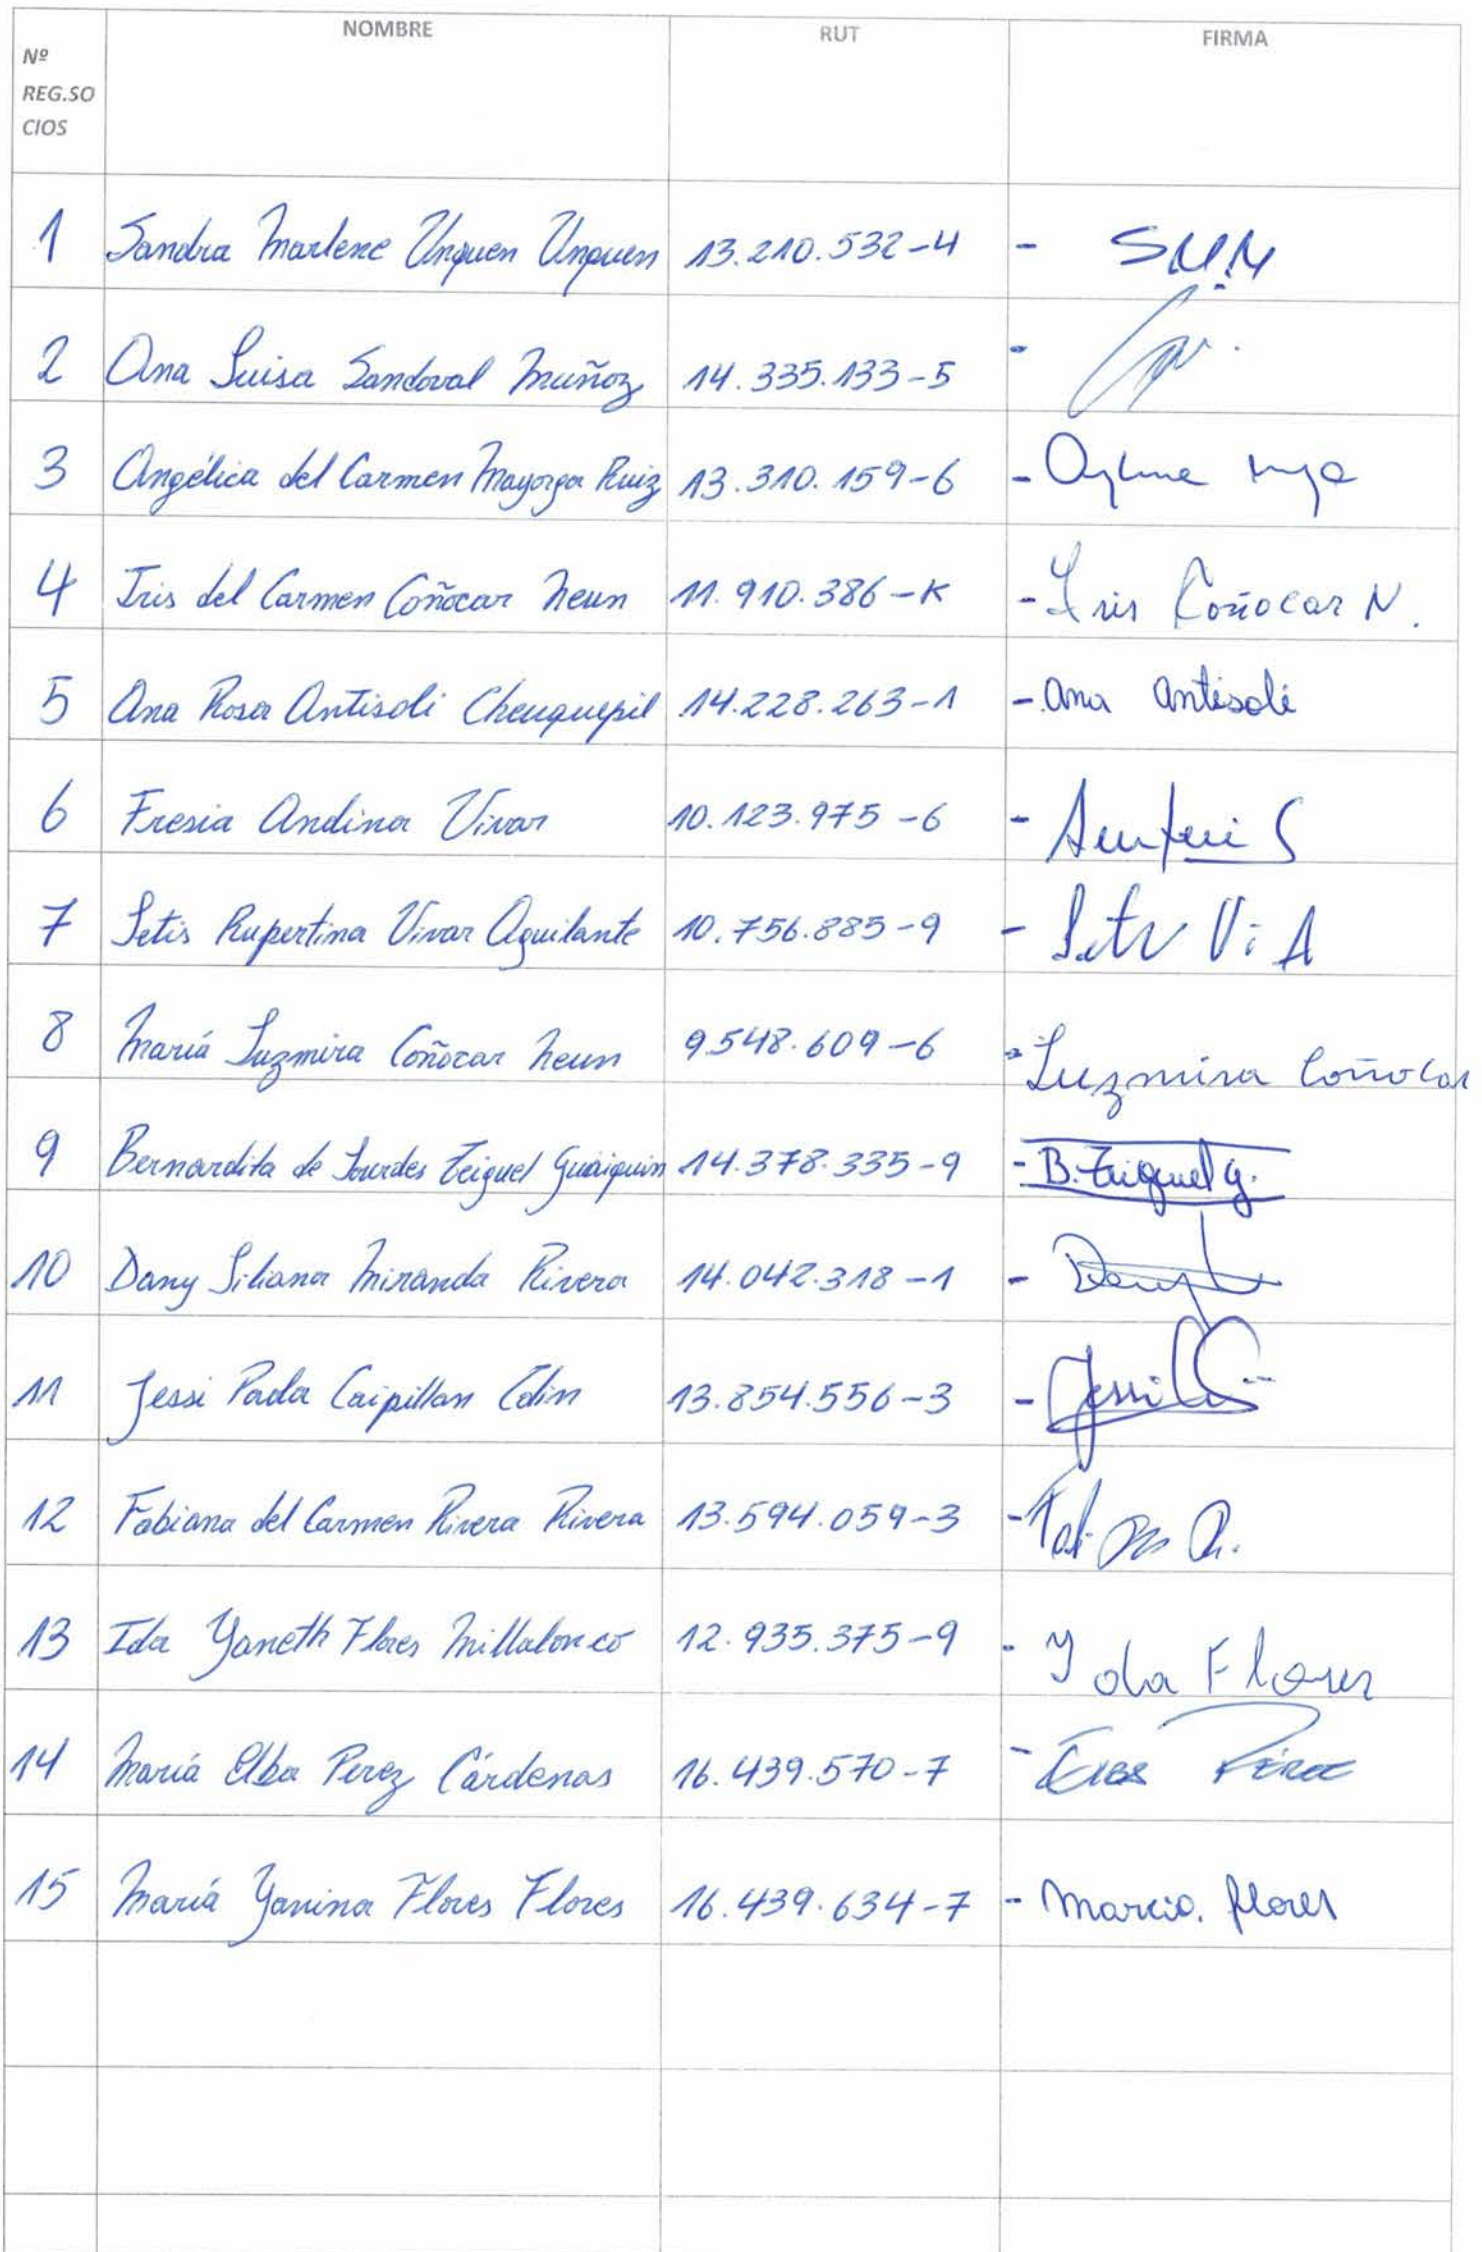 Nº REG.SO CIOS NOMBRE RUT FIRMA
1 Sandra Marlene Unquen Unquen 13.210.532-4 - S.U.U
2 Ana Luisa Sandoval Muñoz 14.335.133-5 -
3 Angélica del Carmen Mayorga Ruiz 13.310.159-6 -
4 Iris del Carmen Coñocar Neun 11.910.386-K - Iris Coñocar N.
5 Ana Rosa Antisoli Cheuquepil 14.228.263-1 - Ana Antisoli
6 Fresia Andina Vivar 10.123.975-6 -
7 Letis Rupertina Vivar Aguilante 10.756.885-9 - Vi A
8 María Luzmira Coñocar Neun 9.548.609-6 - Luzmira Coñocar
9 Bernardita de Lourdes Teiguel Guaiquin 14.378.335-9 - B. Teiguel G.
10 Dany Liliana Miranda Rivera 14.042.318-1 -
11 Jessi Paola Caipillan Colin 13.854.556-3 - Jessi
12 Fabiana del Carmen Rivera Rivera 13.594.059-3 -
13 Ida Yaneth Flores Millalonco 12.935.375-9 - Ida Flores
14 María Elba Perez Cárdenas 16.439.570-7 - Elba Pérez
15 María Yanina Flores Flores 16.439.634-7 - Maria. flores